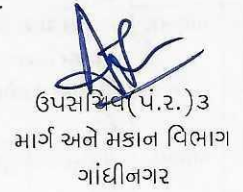 ઉપસચિવ(પં.ર.)૩
માર્ગ અને મકાન વિભાગ
ગાંધીનગર